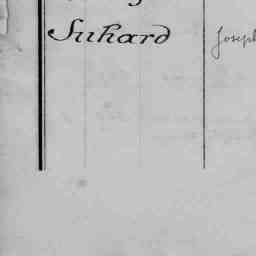 Suhard Joseph